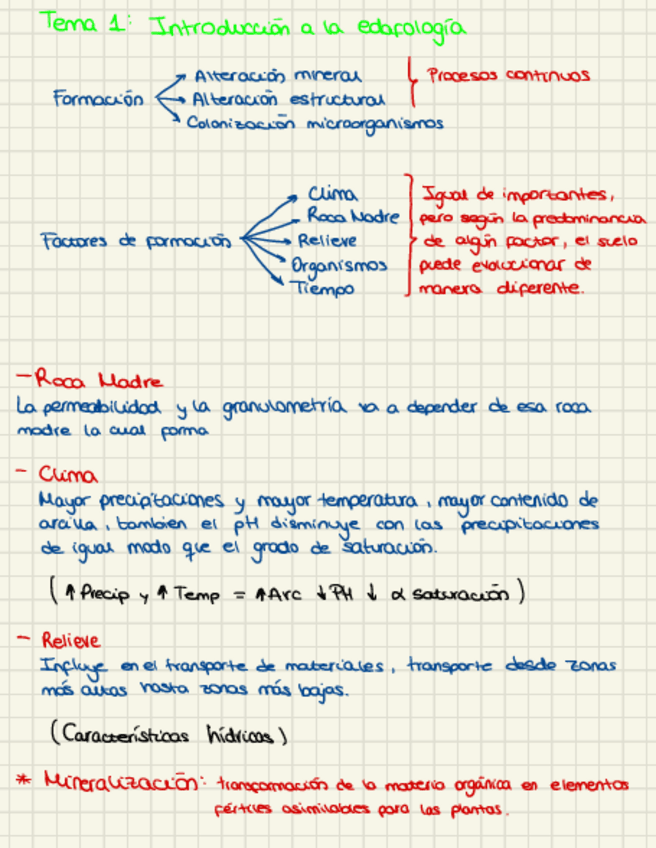 Tema 1: Introducción a la edafología
Alteración mineral
Formación
Alteración estructural
Colonización microorganismos
Procesos continuos
Clima
Roca Madre
Factores de formación
Relieve
Organismos
Tiempo
Igual de importantes,
pero según la predominancia
de algún factor, el suelo
puede evolucionar de
manera diferente.
- Roca Madre
La permeabilidad y la granulometría va a depender de esa roca
madre la cual forma
- Clima
Mayor precipitaciones y mayor temperatura, mayor contenido de
arcilla, tambien el pH disminuye con las precipitaciones
de igual modo que el grado de saturación.
(↑ Precip y ↑ Temp = ↑Arc ↓PH ↓ α saturación)
- Relieve
Influye en el transporte de materiales, transporte desde zonas
más altas hasta zonas más bajas.
(Características hídricas)
* Mineralización: transformación de la materia orgánica en elementos
fértiles asimilables para las plantas.